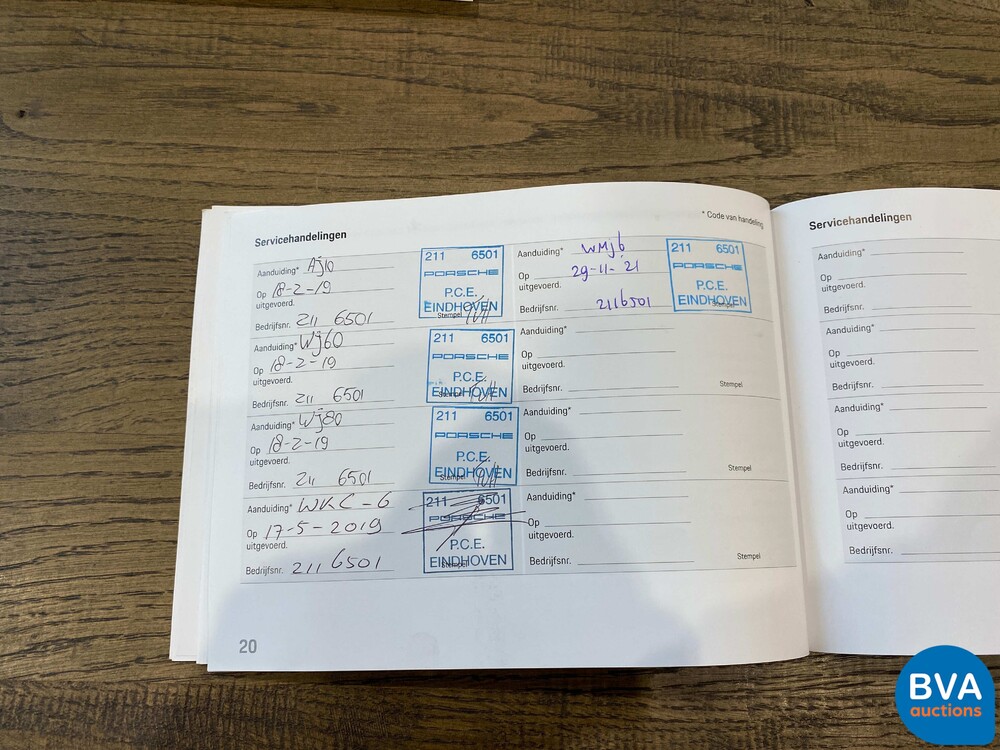 * Code van handeling
Servicehandelingen
Aanduiding* Aj10
Op 18-2-19
uitgevoerd.
Bedrijfsnr. 211 6501
211 6501
PORSCHE
P.C.E.
EINDHOVEN
Stempel
Aanduiding* Wj60
Op 18-2-19
uitgevoerd.
Bedrijfsnr. 211 6501
211 6501
PORSCHE
P.C.E.
EINDHOVEN
Stempel
Aanduiding* Wj80
Op 18-2-19
uitgevoerd.
Bedrijfsnr. 211 6501
211 6501
PORSCHE
P.C.E.
EINDHOVEN
Stempel
Aanduiding* WKC-6
Op 17-5-2019
uitgevoerd.
Bedrijfsnr. 211 6501
211 6501
PORSCHE
P.C.E.
EINDHOVEN
Stempel
Aanduiding* WMj6
Op 29-11-'21
uitgevoerd.
Bedrijfsnr. 2116501
211 6501
PORSCHE
P.C.E.
EINDHOVEN
Stempel
Aanduiding*
Op
uitgevoerd.
Bedrijfsnr.
Stempel
Aanduiding*
Op
uitgevoerd.
Bedrijfsnr.
Stempel
Aanduiding*
Op
uitgevoerd.
Bedrijfsnr.
Stempel
20
Servicehandelingen
Aanduiding*
Op
uitgevoerd.
Bedrijfsnr.
Aanduiding*
Op
uitgevoerd.
Bedrijfsnr.
Aanduiding*
Op
uitgevoerd.
Bedrijfsnr.
Aanduiding*
Op
uitgevoerd.
Bedrijfsnr.
BVA
auctions